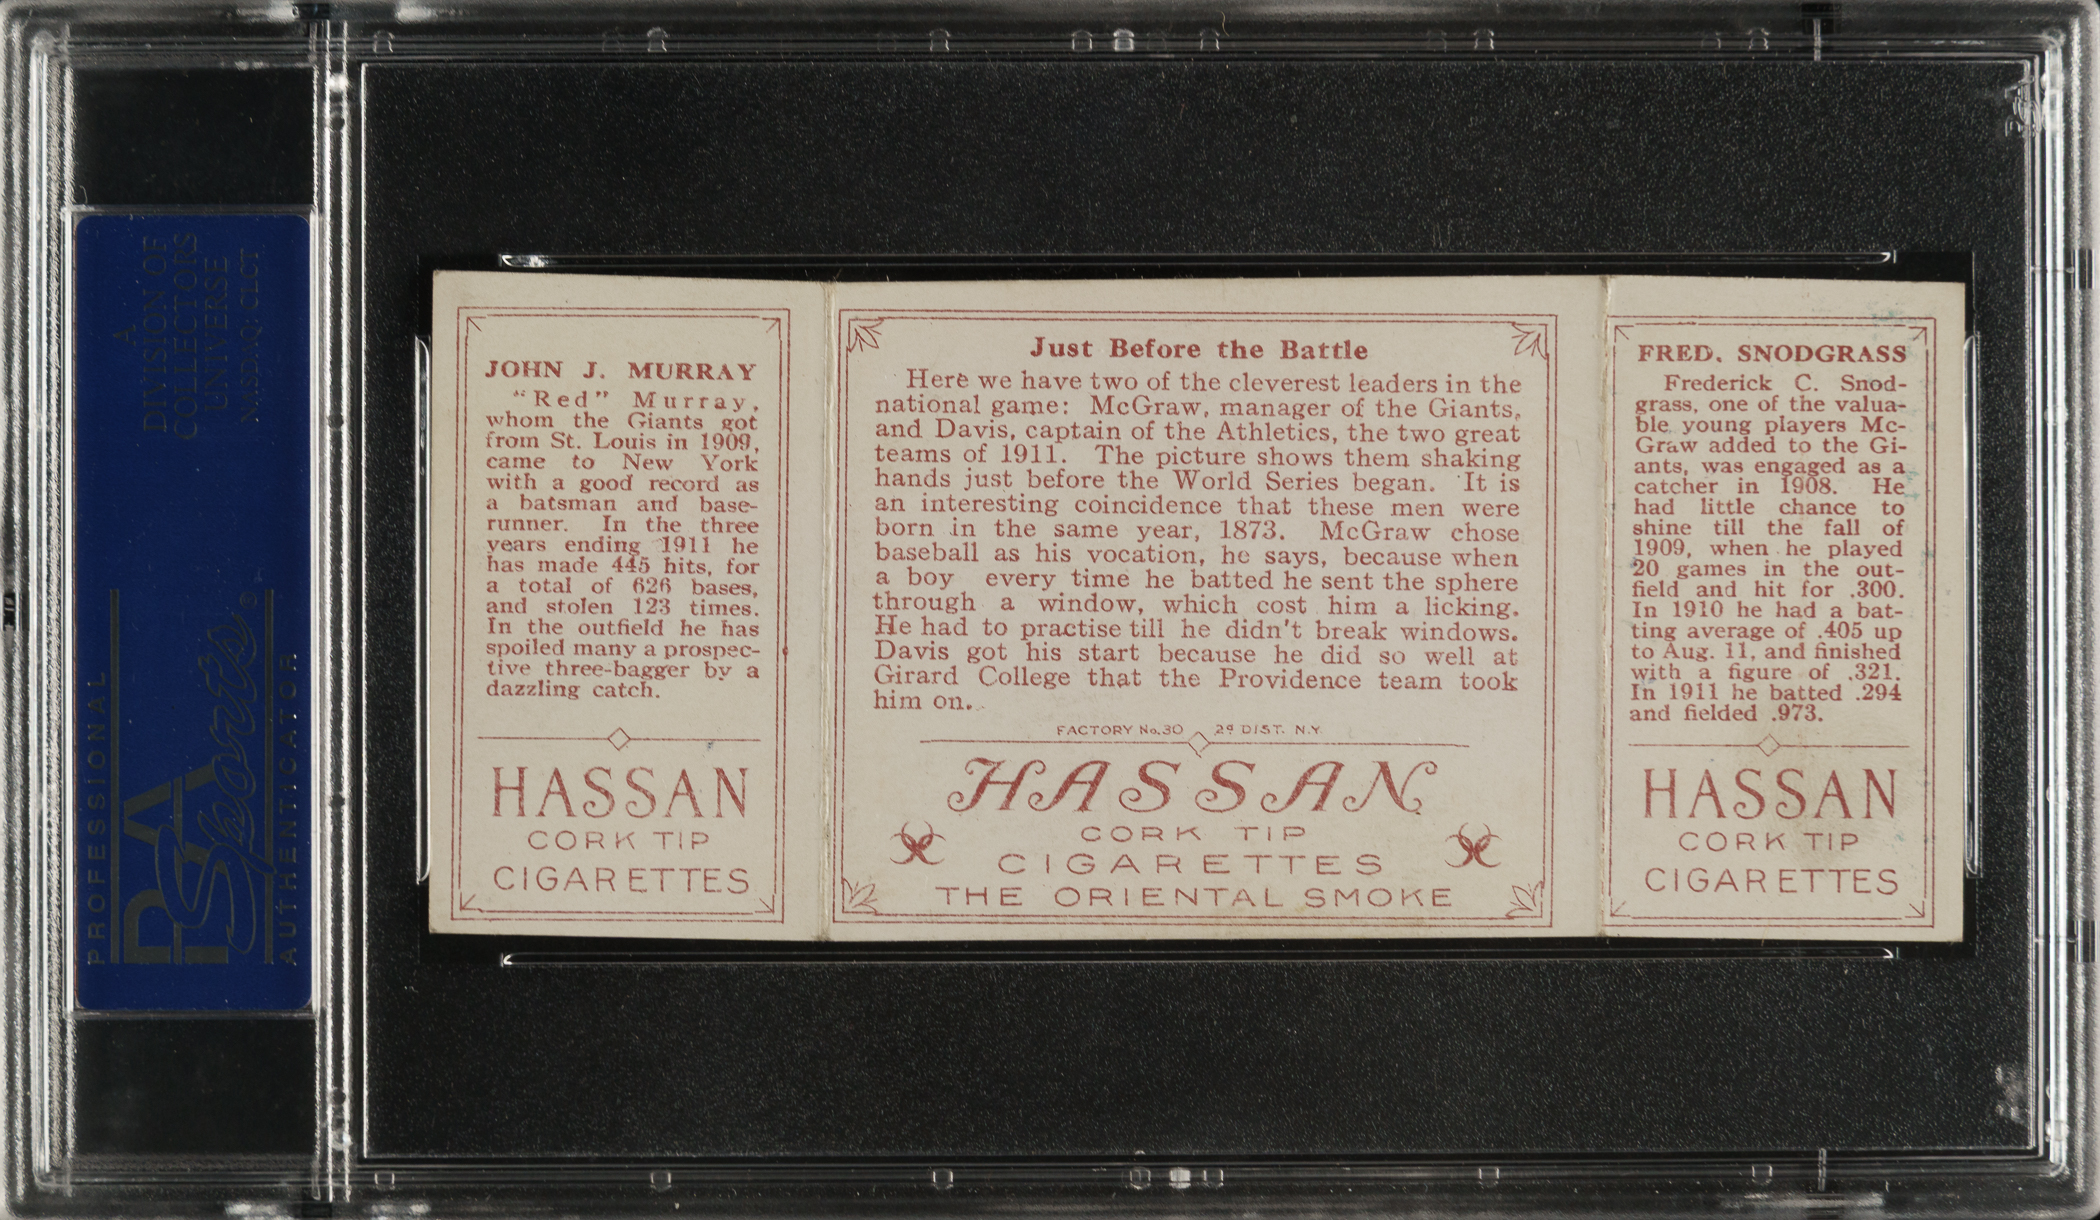 A
DIVISION OF
COLLECTORS
UNIVERSE
NASDAQ: CLCT
PROFESSIONAL
PSA
Sports
AUTHENTICATOR
JOHN J. MURRAY
"Red" Murray,
whom the Giants got
from St. Louis in 1909,
came to New York
with a good record as
a batsman and base-
runner. In the three
years ending 1911 he
has made 445 hits, for
a total of 626 bases,
and stolen 123 times.
In the outfield he has
spoiled many a prospec-
tive three-bagger by a
dazzling catch.
HASSAN
CORK TIP
CIGARETTES
Just Before the Battle
Here we have two of the cleverest leaders in the
national game: McGraw, manager of the Giants,
and Davis, captain of the Athletics, the two great
teams of 1911. The picture shows them shaking
hands just before the World Series began. It is
an interesting coincidence that these men were
born in the same year, 1873. McGraw chose
baseball as his vocation, he says, because when
a boy every time he batted he sent the sphere
through a window, which cost him a licking.
He had to practise till he didn't break windows.
Davis got his start because he did so well at
Girard College that the Providence team took
him on.
FACTORY No. 30 2d DIST. N.Y.
HASSAN
CORK TIP
CIGARETTES
THE ORIENTAL SMOKE
FRED. SNODGRASS
Frederick C. Snod-
grass, one of the valua-
ble young players Mc-
Graw added to the Gi-
ants, was engaged as a
catcher in 1908. He
had little chance to
shine till the fall of
1909, when he played
20 games in the out-
field and hit for .300.
In 1910 he had a bat-
ting average of .405 up
to Aug. 11, and finished
with a figure of .321.
In 1911 he batted .294
and fielded .973.
HASSAN
CORK TIP
CIGARETTES